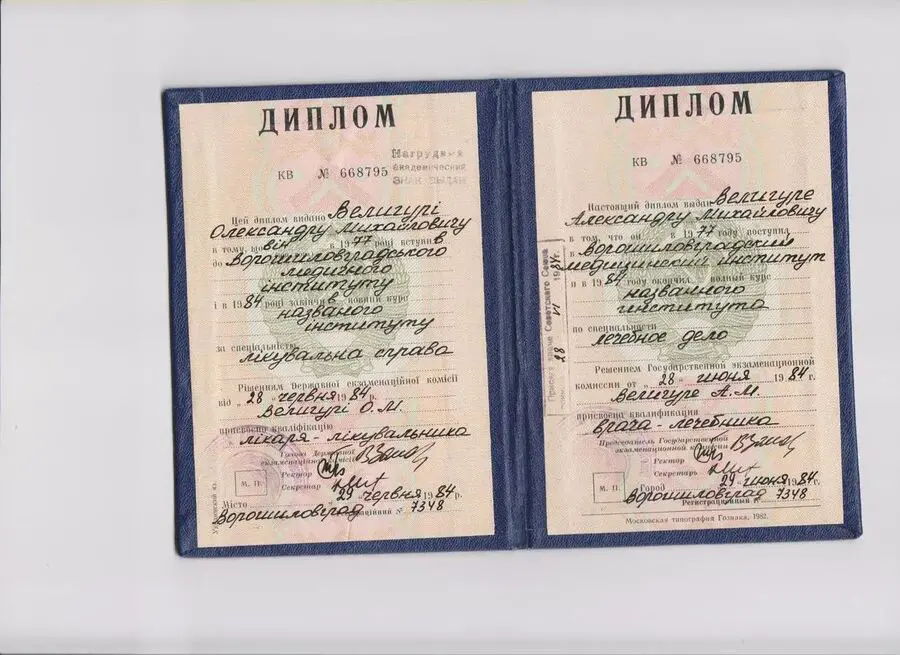 ДИПЛОМ
КВ № 668795
Нагрудный
академический
знак выдан
Цей диплом видано Велигурі
Олександру Михайловичу
в тому, що він в 1977 році вступив
до Ворошиловградського
медичного
інституту
і в 1984 році закінчив повний курс
названого
інституту
за спеціальністю
лікувальна справа
Рішенням Державної екзаменаційної комісії
від „28" червня 1984 р.
Велигурі О.М.
присвоєно кваліфікацію
лікаря-лікувальника
Голова Державної
екзаменаційної комісії
Ректор
Секретар
М. П.
29 червня 1984 р.
Місто Ворошиловград
Реєстраційний № 7348
ДИПЛОМ
КВ № 668795
Настоящий диплом выдан Велигуре
Александру Михайловичу
в том, что он в 1977 году поступил
в Ворошиловградский
медицинский институт
и в 1984 году окончил полный курс
названого
института
по специальности
лечебное дело
Решением Государственной экзаменационной
комиссии от „28" июня 1984 г.
Велигуре А.М.
присвоена квалификация
врача-лечебника
Председатель Государственной
экзаменационной комиссии
Ректор
Секретарь
М. П.
29 июня 1984 г.
Город Ворошиловград
Регистрационный № 7348
Московская типография Гознака, 1982.
Советского Союза
28 VI 1984 г.